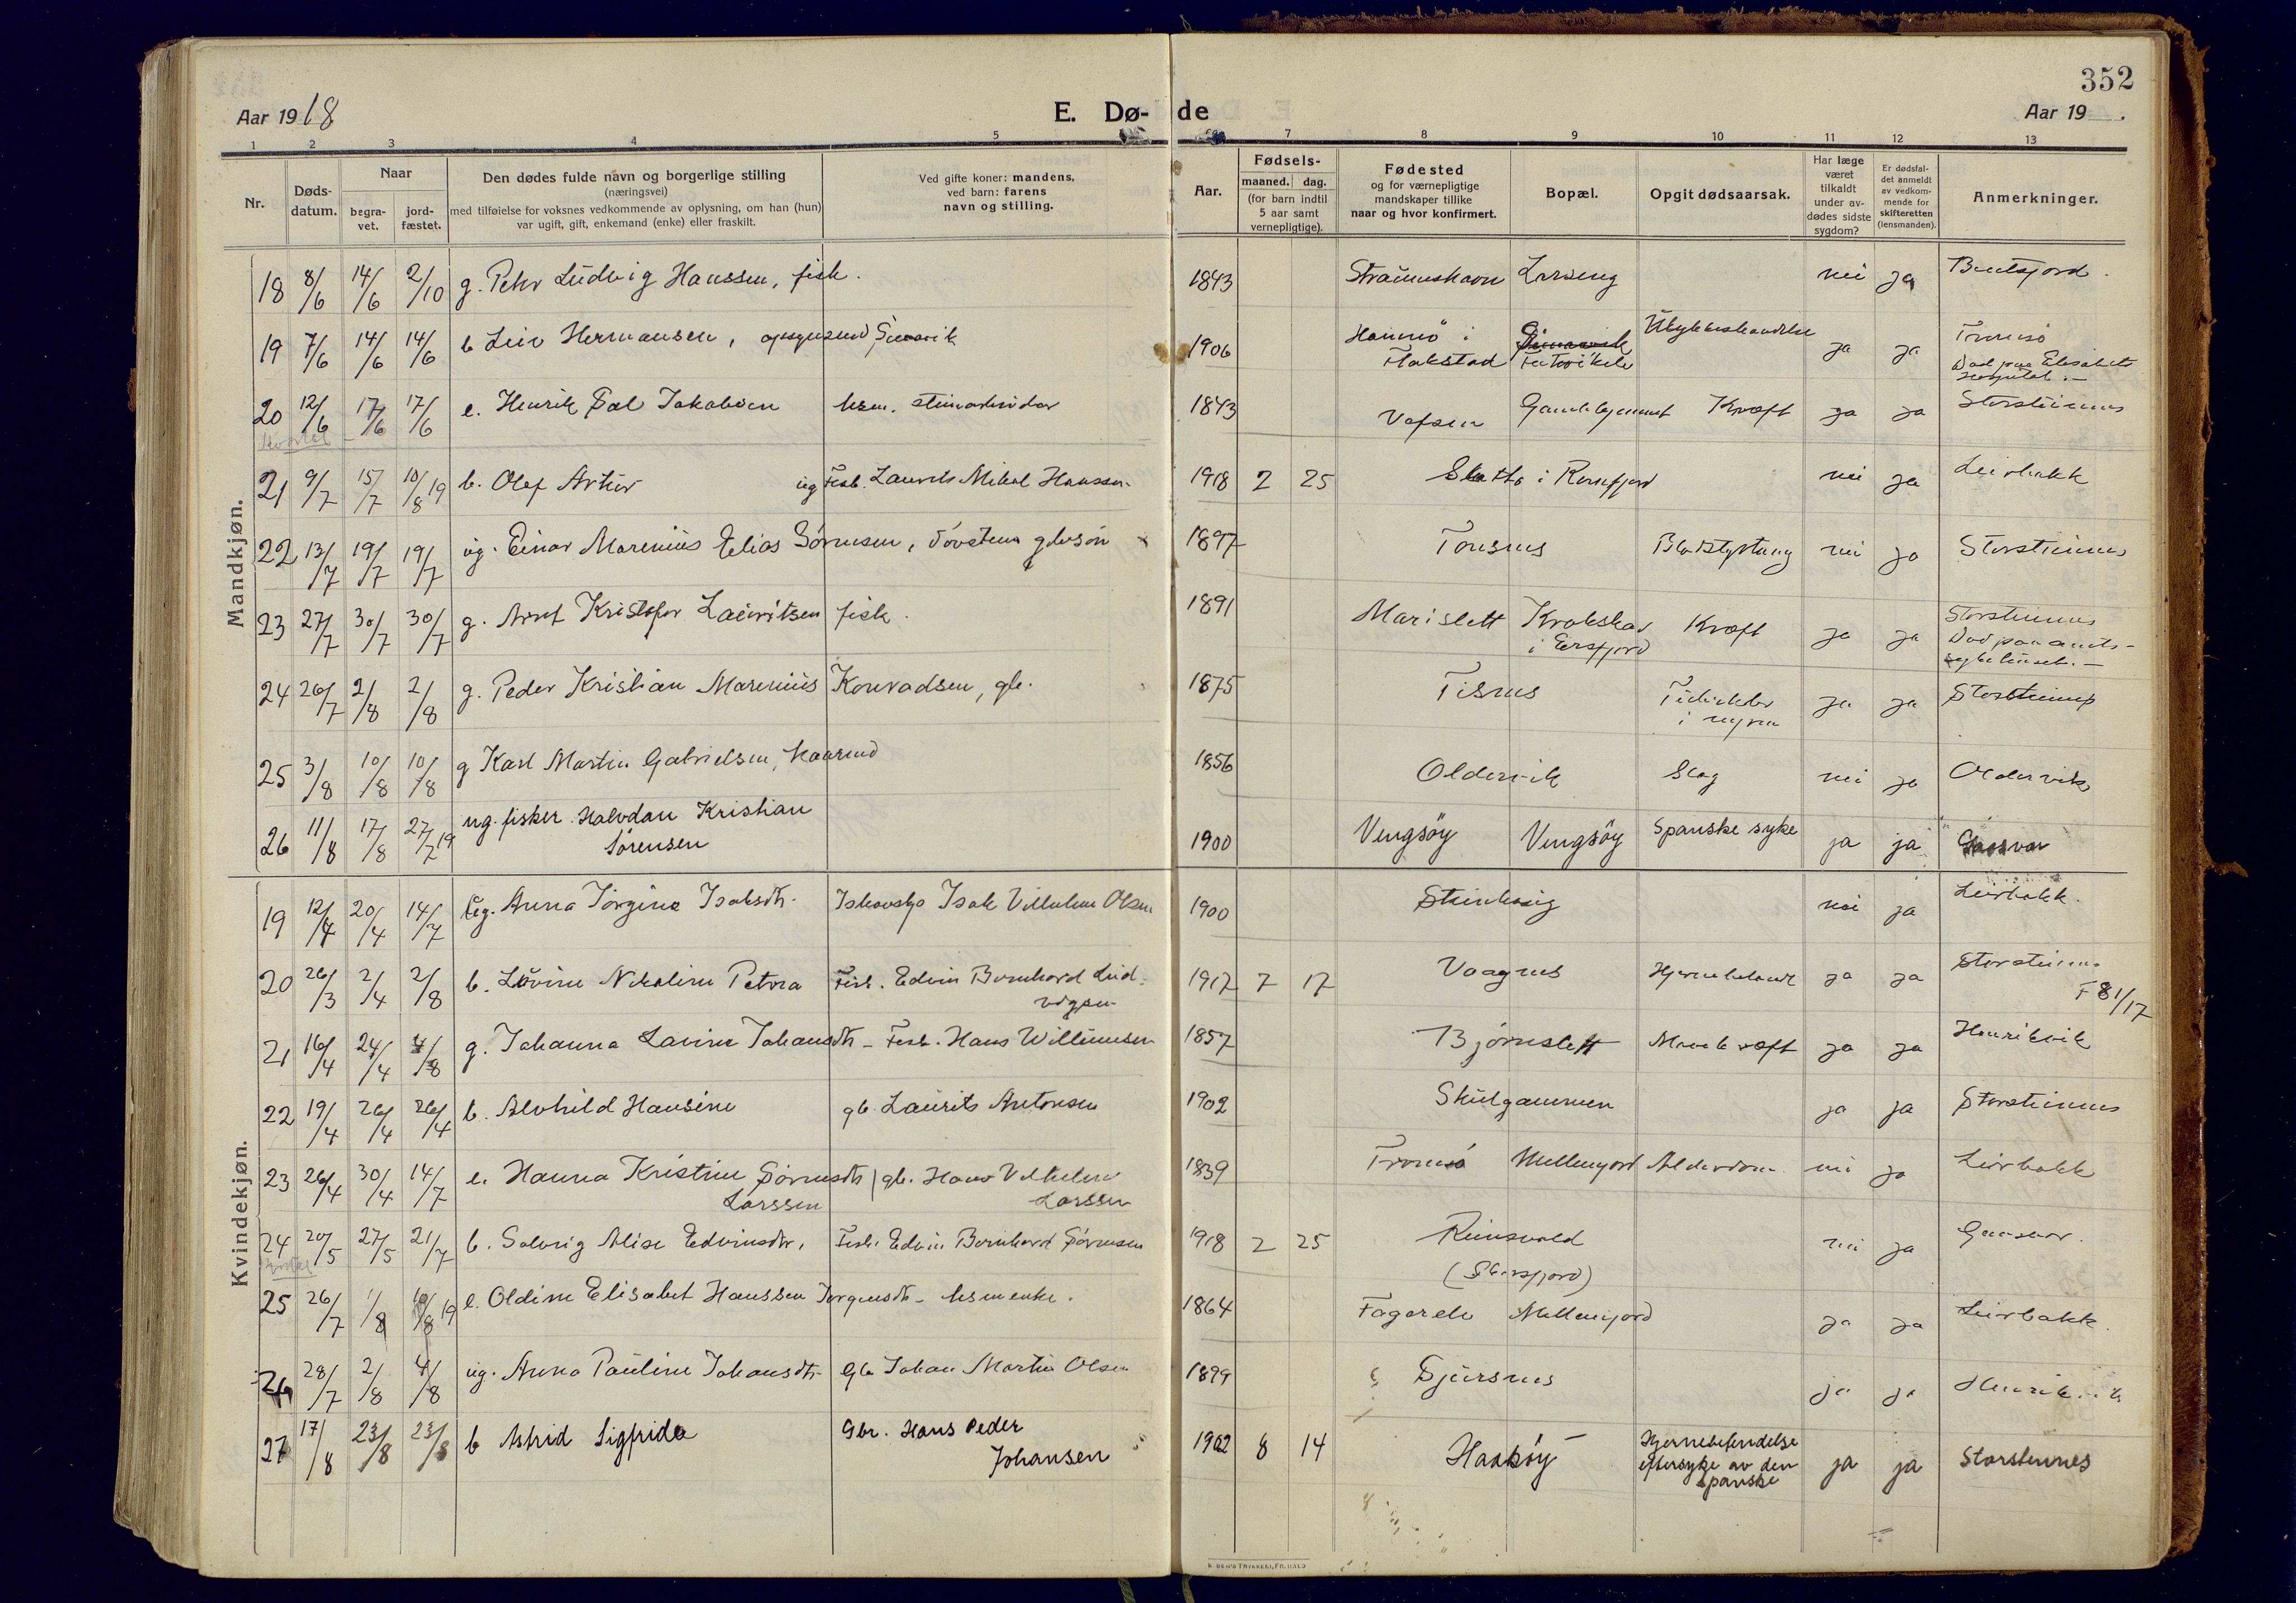 352
Aar 1918
E. Dø-
de
Aar 19 .
1 2 3 4 5 6 7 8 9 10 11 12 13
Nr.
Døds-
datum.
Naar
begra-
vet.
jord-
fæstet.
Den dødes fulde navn og borgerlige stilling
(næringsvei)
med tilføielse for voksnes vedkommende av oplysning, om han (hun)
var ugift, gift, enkemand (enke) eller fraskilt.
Ved gifte koner: mandens,
ved barn: farens
navn og stilling.
Aar.
Fødsels-
maaned. dag.
(for barn indtil
5 aar samt
vernepligtige).
Fødested
og for værnepligtige
mandskaper tillike
naar og hvor konfirmert.
Bopæl.
Opgit dødsaarsak.
Har læge
været
tilkaldt
under av-
dødes sidste
sygdom?
Er dødsfal-
det anmeldt
av vedkom-
mende for
skifteretten
(lensmanden).
Anmerkninger.
Mandkjøn.
18 8/6 14/6 2/10 g. Petter Ludvig Hanssen, fisk. 1843 Straumshavn Larseng nei ja Bentsjord.
19 7/6 14/6 14/6 b Leiv Hermansen, 1906 i Flakstad Ulykkeshændelse ja ja Tromsø
Død paa Elisabeth
hospital.
20 12/6 17/6 17/6 e. Henrik Pal Jakobsen hsm. 1843 Vefsen Gamlehjemmet Kræft ja ja Storsteinnes
21 9/7 15/7 10/8 19 b. Olaf Artur ug Fisk. Laurits Mikal Hanssen 1918 2 25 Sletta i nei ja Leirbakk
22 13/7 19/7 19/7 ug. Einar Marenius Elias Sørensen, døvstum gbr søn 1897 Tonsnes Blodstyrtning nei ja Storsteinnes
23 27/7 30/7 30/7 g. Arnt Kristofer Lauritsen fisk. 1891 Marislett
i Ersfjord Kræft ja ja Storsteinnes
Død paa amts-
sykehuset.
24 26/7 2/8 2/8 g. Peder Kristian Marenius Konradsen, gbr. 1875 Tisnes
ja ja Storsteinnes
25 3/8 10/8 10/8 g Karl Martin Gabrielsen, kaarmd 1856 Oldervik Slag nei ja Oldervik
26 11/8 17/8 27/7 19 ug. fisker Halvdan Kristian
Sørensen 1900 Vengsöy Vengsöy Spanske syke ja ja Gaasvær
Kvindekjøn.
19 12/4 20/4 14/7 ug. Anna Jørgine Isaksdtr. Isak Vilhelm Olsen 1900 nei ja Leirbakk.
20 26/3 2/4 2/8 b. Lovine Nikoline Petra Fisk. Edvin Bernhard Lud-
vigsen 1917 7 17 Vaagnes ja ja Storsteinnes
F 81/17
21 16/4 24/4 4/8 g. Johanna Lavine Johansdtr - Fisk. Hans Willumsen 1857 Bjørnslett Mavekræft ja ja Henrikvik
22 19/4 26/4 26/4 b. Alvhild Hansine gb. Laurits Antonsen 1902 Skulgammen ja ja Storsteinnes
23 26/4 30/4 14/7 e. Hanna Kristine Sørensdtr
Larssen gb. Hans Vilhelm
Larssen 1839 Tromsø Mellemjord Alderdom nei ja Leirbakk
24 20/5 27/5 21/7 b. Solveig Alise Edvinsdtr. Fisk. Edvin Bernhard Sørensen 1918 2 25 Reinsvold
nei ja Gaasvær.
25 26/7 1/8 10/8 19 e. Oldine Elisabet Hanssen Jørgensdtr - hsmenke. 1864 Fagerelv Mellemjord ja ja Leirbakk.
26 28/7 2/8 4/8 ug. Anna Pauline Johansdtr. Gb. Johan Martin Olsen 1899 Gjursnes ja ja
27 17/8 23/8 23/8 b Astrid Sigfrida Gbr. Hans Peder
Johansen 1902 8 14 Haakøy Hjernebetendelse
eftersyke av den
spanske ja ja Storstennes